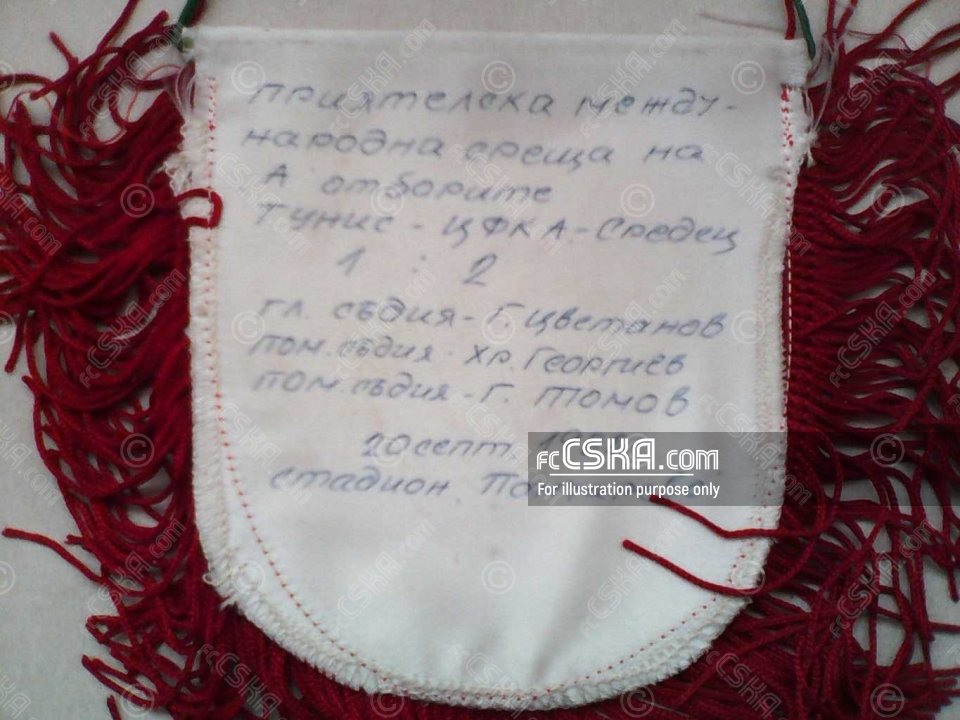 приятелска между-
народна среща на
А отборите
Тунис - ЦФКА - Средец
1 : 2
гл. съдия - Г. Цветанов
пом. съдия - Хр. Георгиев
пом. съдия - Г. Томов
20 септ.
стадион
fcCSKA.com
For illustration purpose only